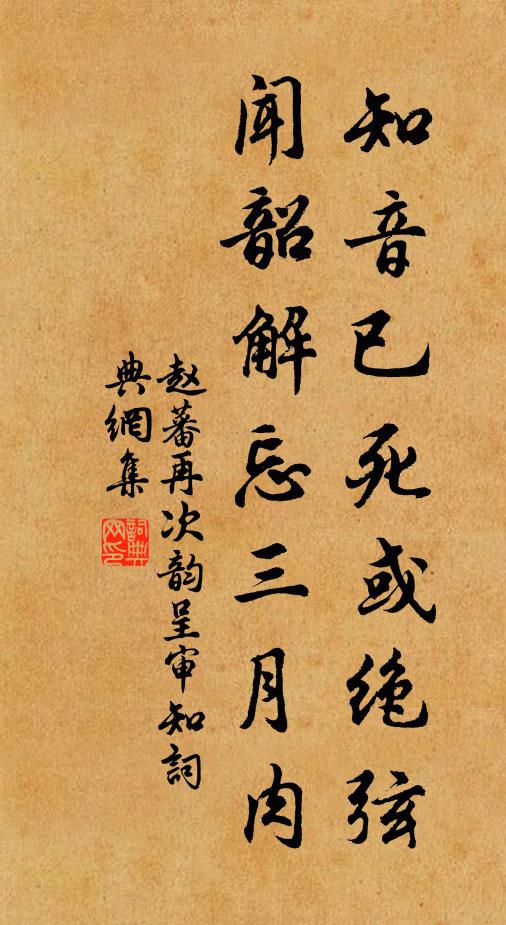 知音已死或绝弦
闻韶解忘三月肉
赵蕃再次韵呈审知詞
典網集
詞典
网印